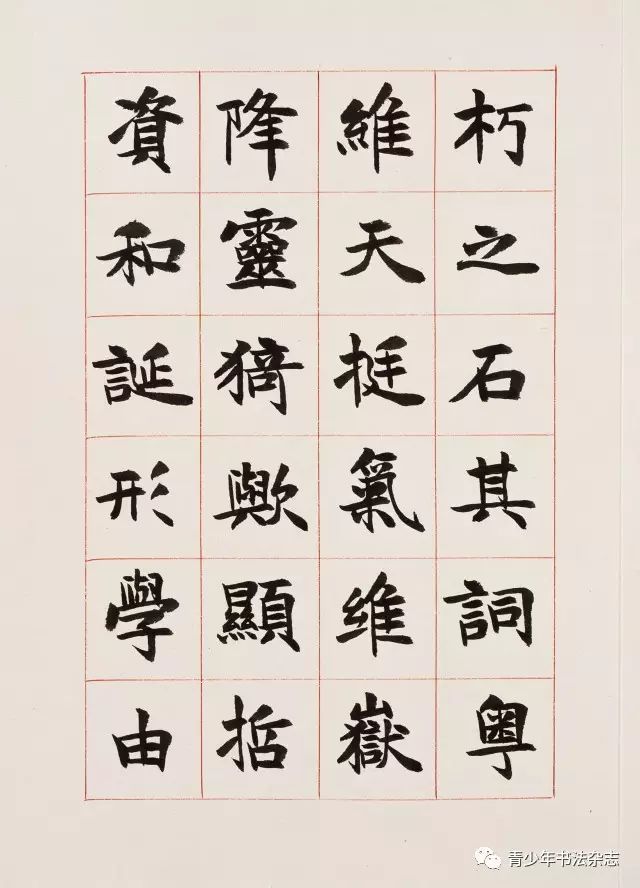 朽之石其詞粵
維天挺氣维嶽
降靈猗歟顯哲
資和誕形學由
青少年书法杂志